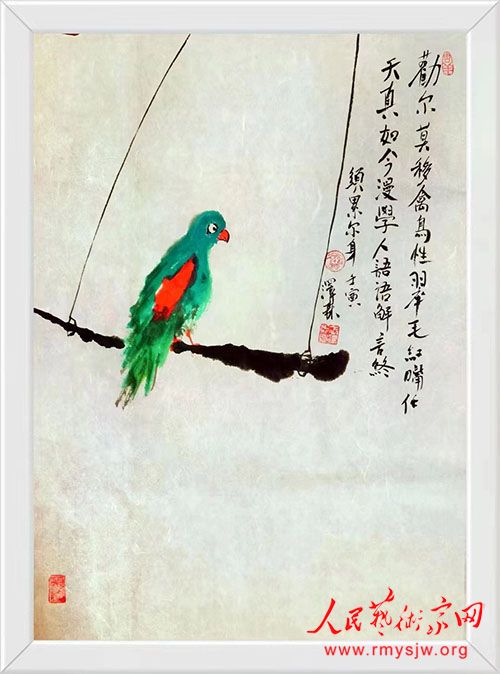 勸尔莫移禽鳥性翠毛紅嘴任
天真如今漫學人語語解言終
須累尔身 壬寅
人民藝術家网
www.rmysjw.org